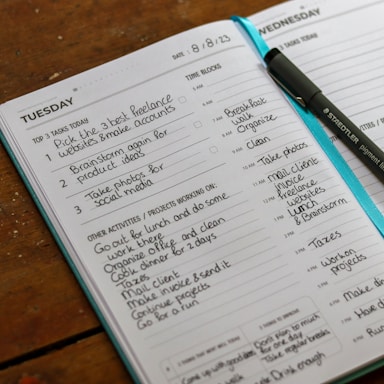 WEDNESDAY
TOP 3 TASKS TODAY
DATE: 8/8/23
TUESDAY
TOP 3 TASKS TODAY
1 Pick the 3 best freelance
websites & make accounts
2 Brainstorm again for
product ideas
3 Take photos for
social media
OTHER ACTIVITIES / PROJECTS WORKING ON:
Go out for lunch and do some
work there
Organize office and clean
Cook dinner for 2 days
Taxes
Mail client
Make invoice & send it
Continue projects
Go for a run
TIME BLOCKS
5 AM
6 AM
7 AM Breakfast
8 AM walk
Organize
9 AM clean
10 AM Take photos
11 AM Mail client
invoice
12 PM Freelance
websites
1 PM Lunch
2 PM & Brainstorm
3 PM Taxes
4 PM work on
projects
Make
Have
Run
3 THINGS THAT WENT WELL TODAY
Come up with good
3 THINGS TO IMPROVE
Don't plan to much
for one day
Take regular breaks
Drink enough
STAEDTLER pigment